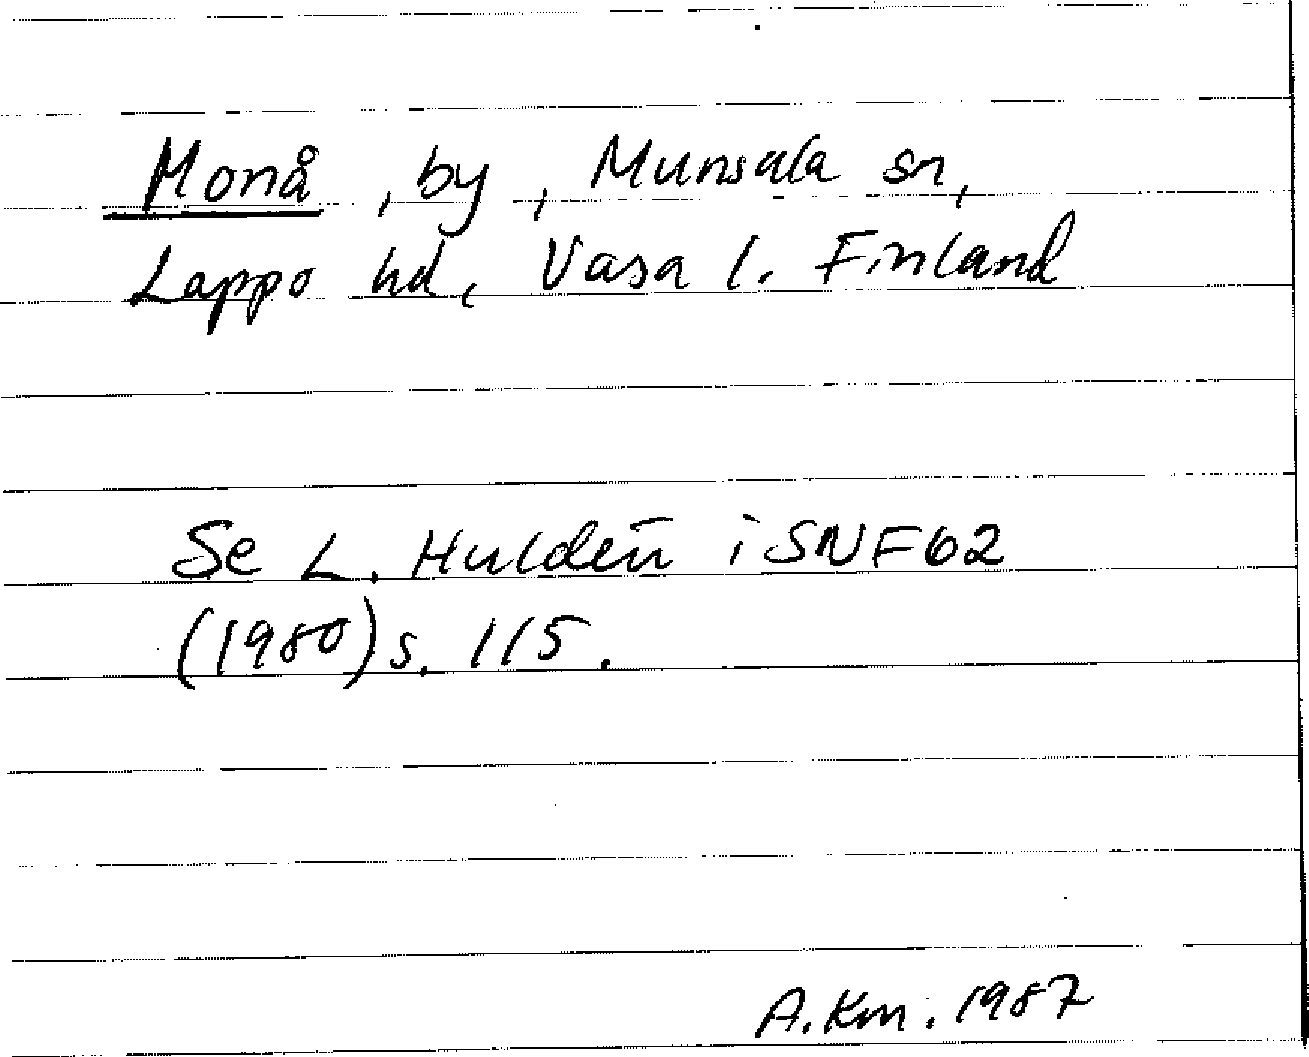 Monå, by, Munsala sn,
Lappo hd, Vasa l. Finland
Se L. Huldén i SNF 62
(1980) s. 115.
A. Km. 1987